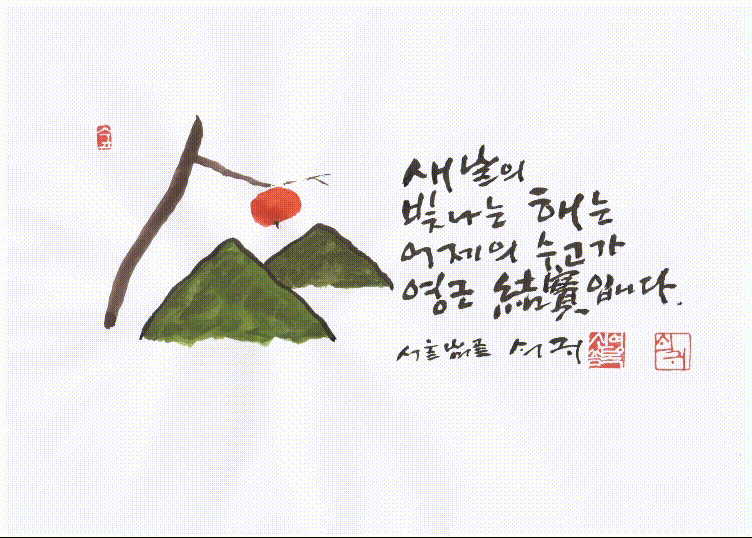 새날의
빛나는 해는
어제의 수고가
영근 結實입니다.
서울